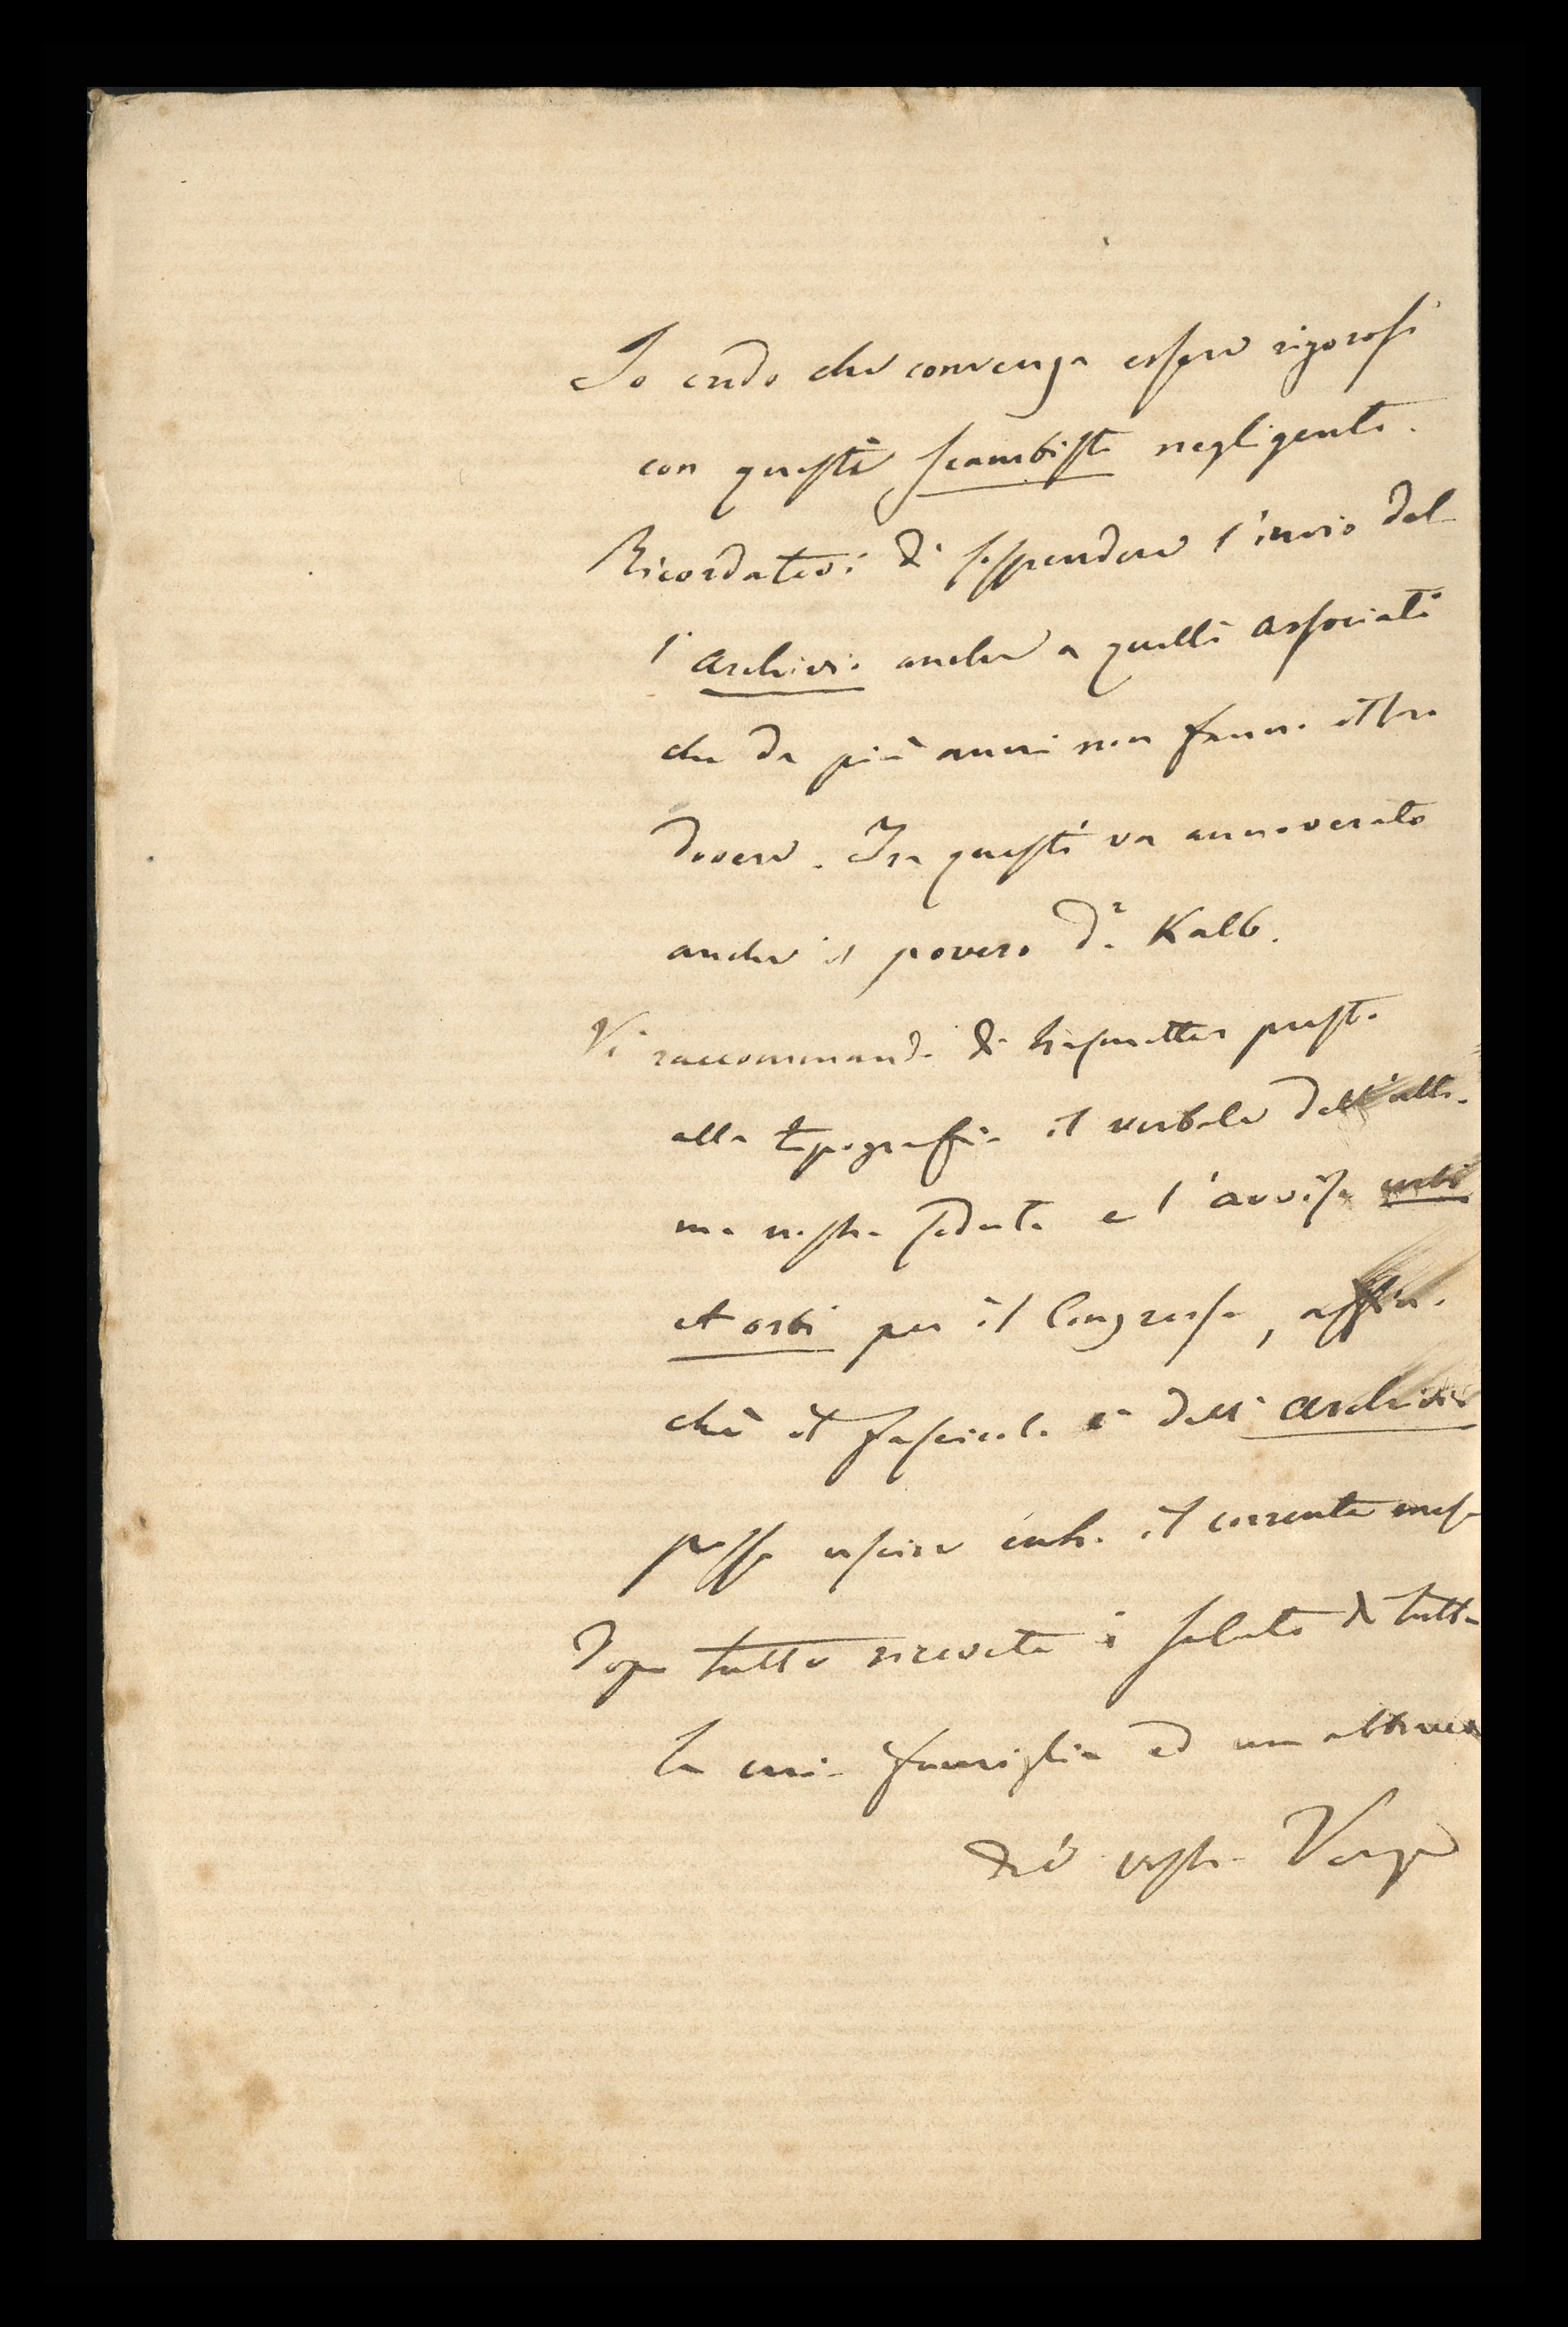 Io credo che convenga essere rigorosi
con questi scambisti negligenti.
Ricordatevi di sospendere l'invio del
l'Archivio anche a quelli associati
che da più anni non fanno il loro
dovere. Fra questi va annoverato
anche il povero Dr. Kalb.
Vi raccomando di trasmetter presto
alla tipografia il verbale dell'ulti-
ma nostra seduta e l'avviso urbi
et orbi per il Congresso, affin-
chè il fascicolo dell'Archivio
possa uscire entro il corrente mese
Dopo tutto ricevete i saluti di tutta
la mia famiglia ed un abbraccio
del vostro Verga